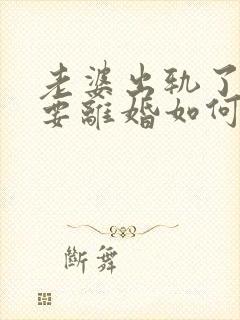 老婆出轨了
要離婚如何
斷舞